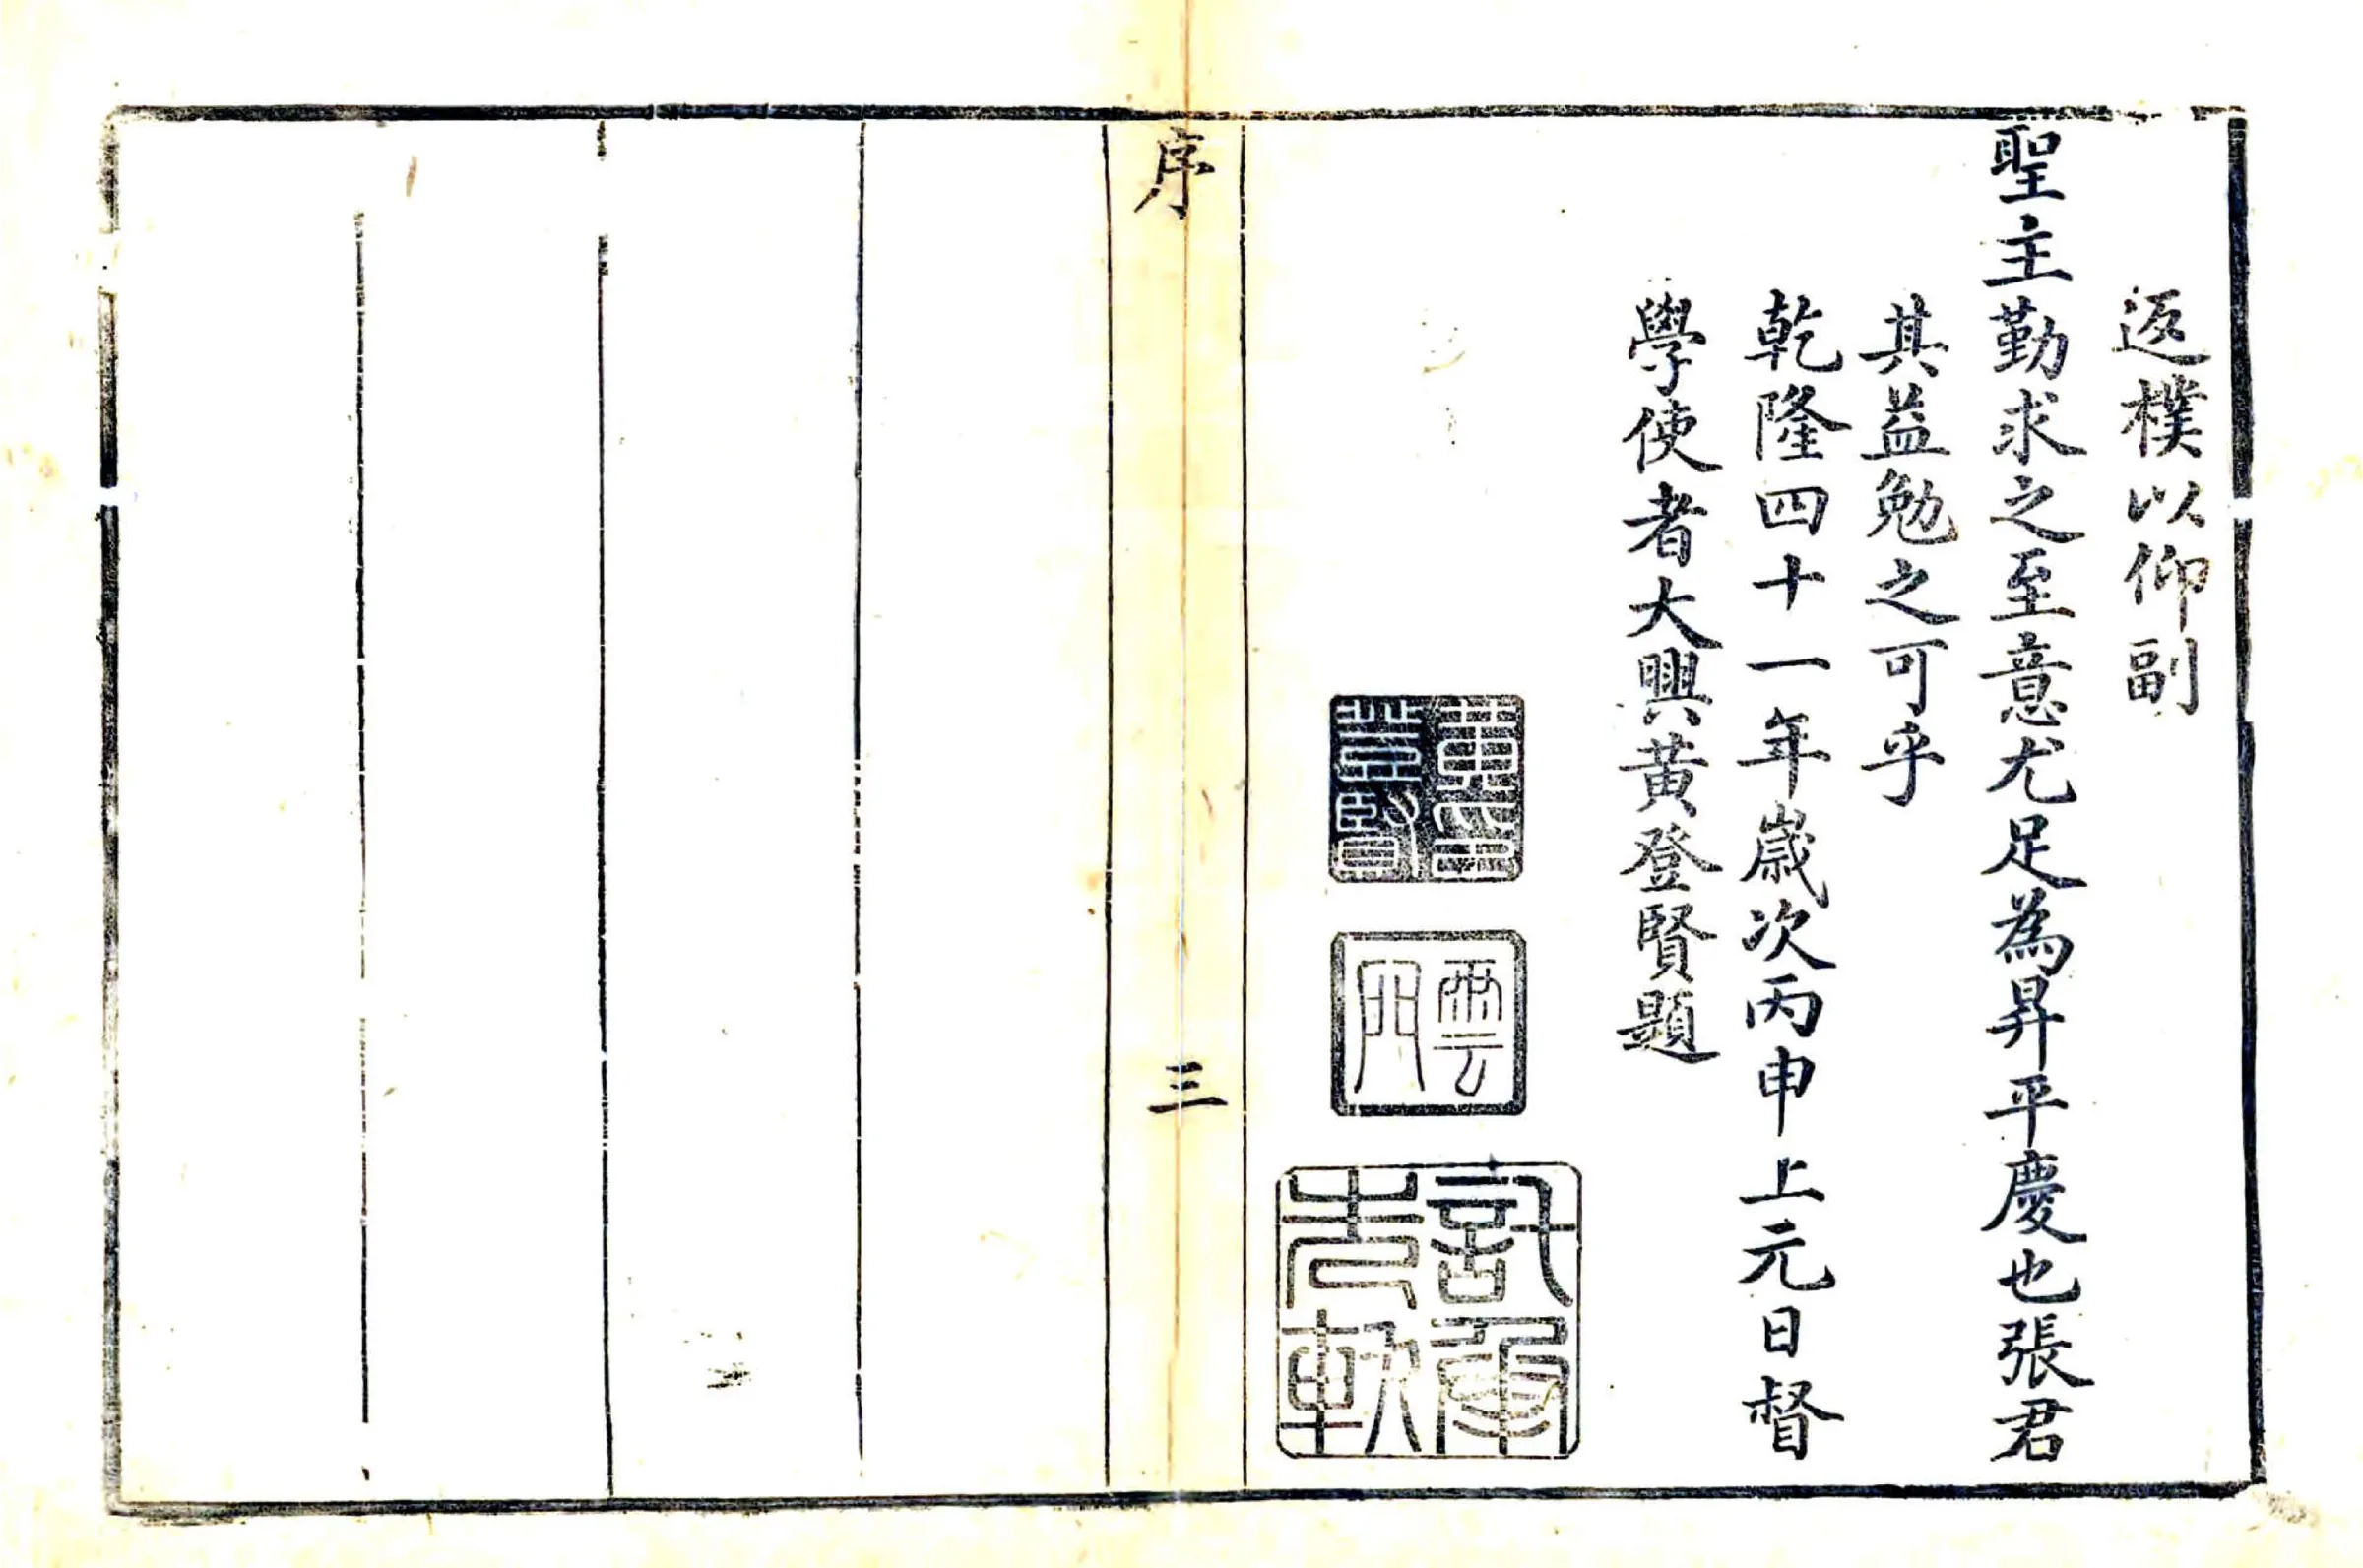 返樸以仰副
聖主勤求之至意尤足為昇平慶也張君
其益勉之可乎
乾隆四十一年歲次丙申上元日督
學使者大興黃登賢題
黃印登賢
雲門
序
三